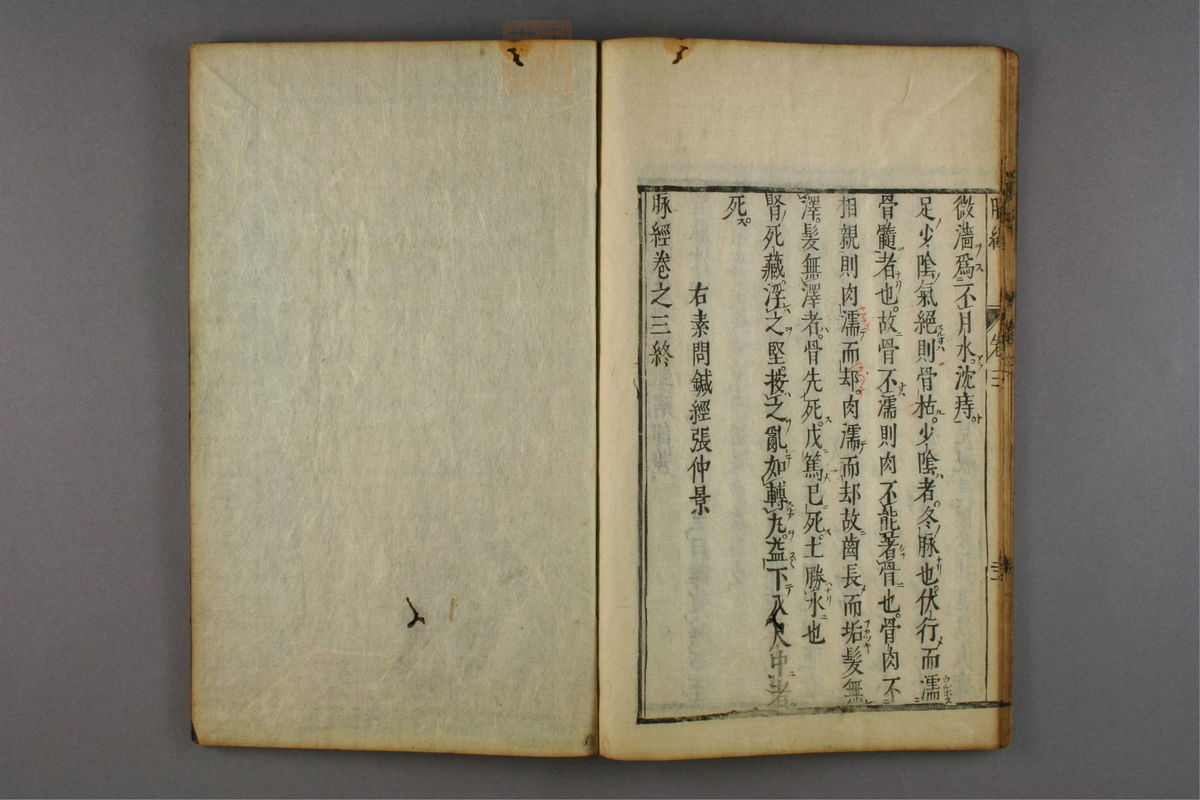 脉經 卷三
微濇爲不月水沈痔
足少陰氣絕則骨枯少陰者冬脉也伏行而濡
骨髓者也故骨不濡則肉不能著骨也骨肉不
相親則肉濡而却肉濡而却故齒長而垢髮無
澤髮無澤者骨先死戊篤已死土勝水也
腎死藏浮之堅按之亂如轉丸益下入尺中者
死
右素問鍼經張仲景
脉經卷之三終